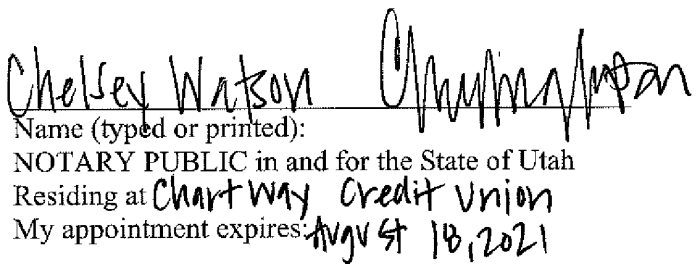 Chelsey Watson
Name (typed or printed):
NOTARY PUBLIC in and for the State of Utah
Residing at Chartway Credit Union
My appointment expires: August 18, 2021